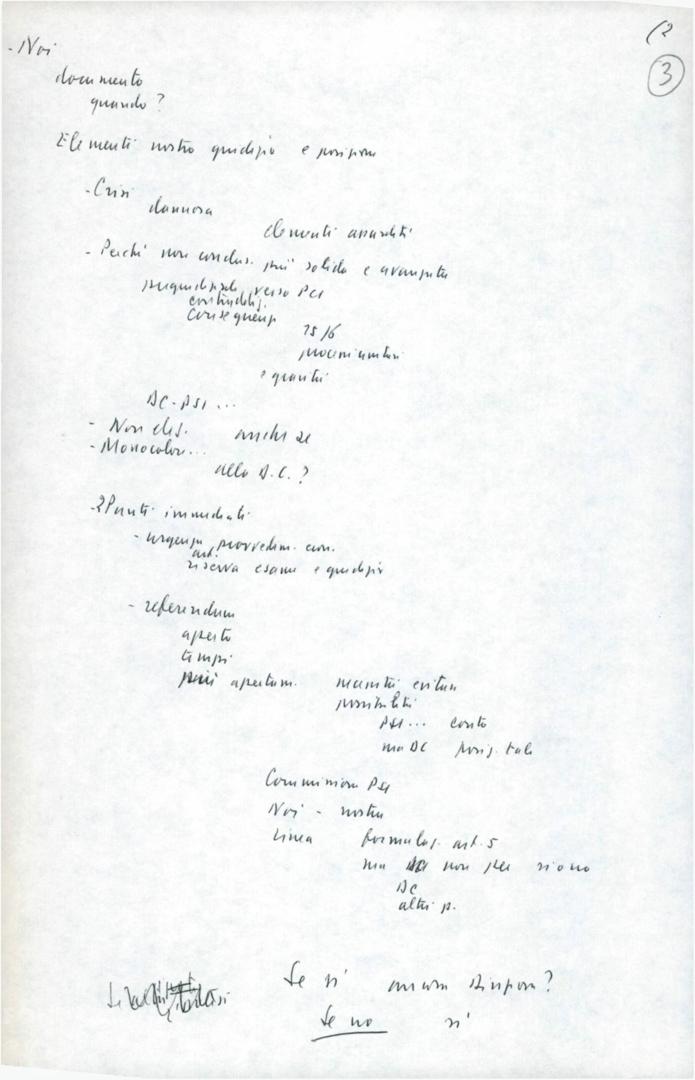 (2
3
- Noi
documento
quando?
Elementi nostro giudizio e posizioni
- Crisi
dannosa
elementi
- Perché non conclus. più solida e avanzata
verso PCI
contraddiz.
conseguenze
15/6
e gravità
DC-PSI...
- Non dis. anche se
- Monocolore...
alla D.C.?
- 2 Punti immediati
- urgenza provvedim. econ.
riserva esame e giudizio
- referendum
aperto
tempi
più apertam. evitare
possibilità
PSI... conto
ma DC posiz. tale
Commissione PSI
Noi - nostra
Linea formulaz. art. 5
ma non per sì o no
DC
altri p.
Se sì ancora?
Se no sì